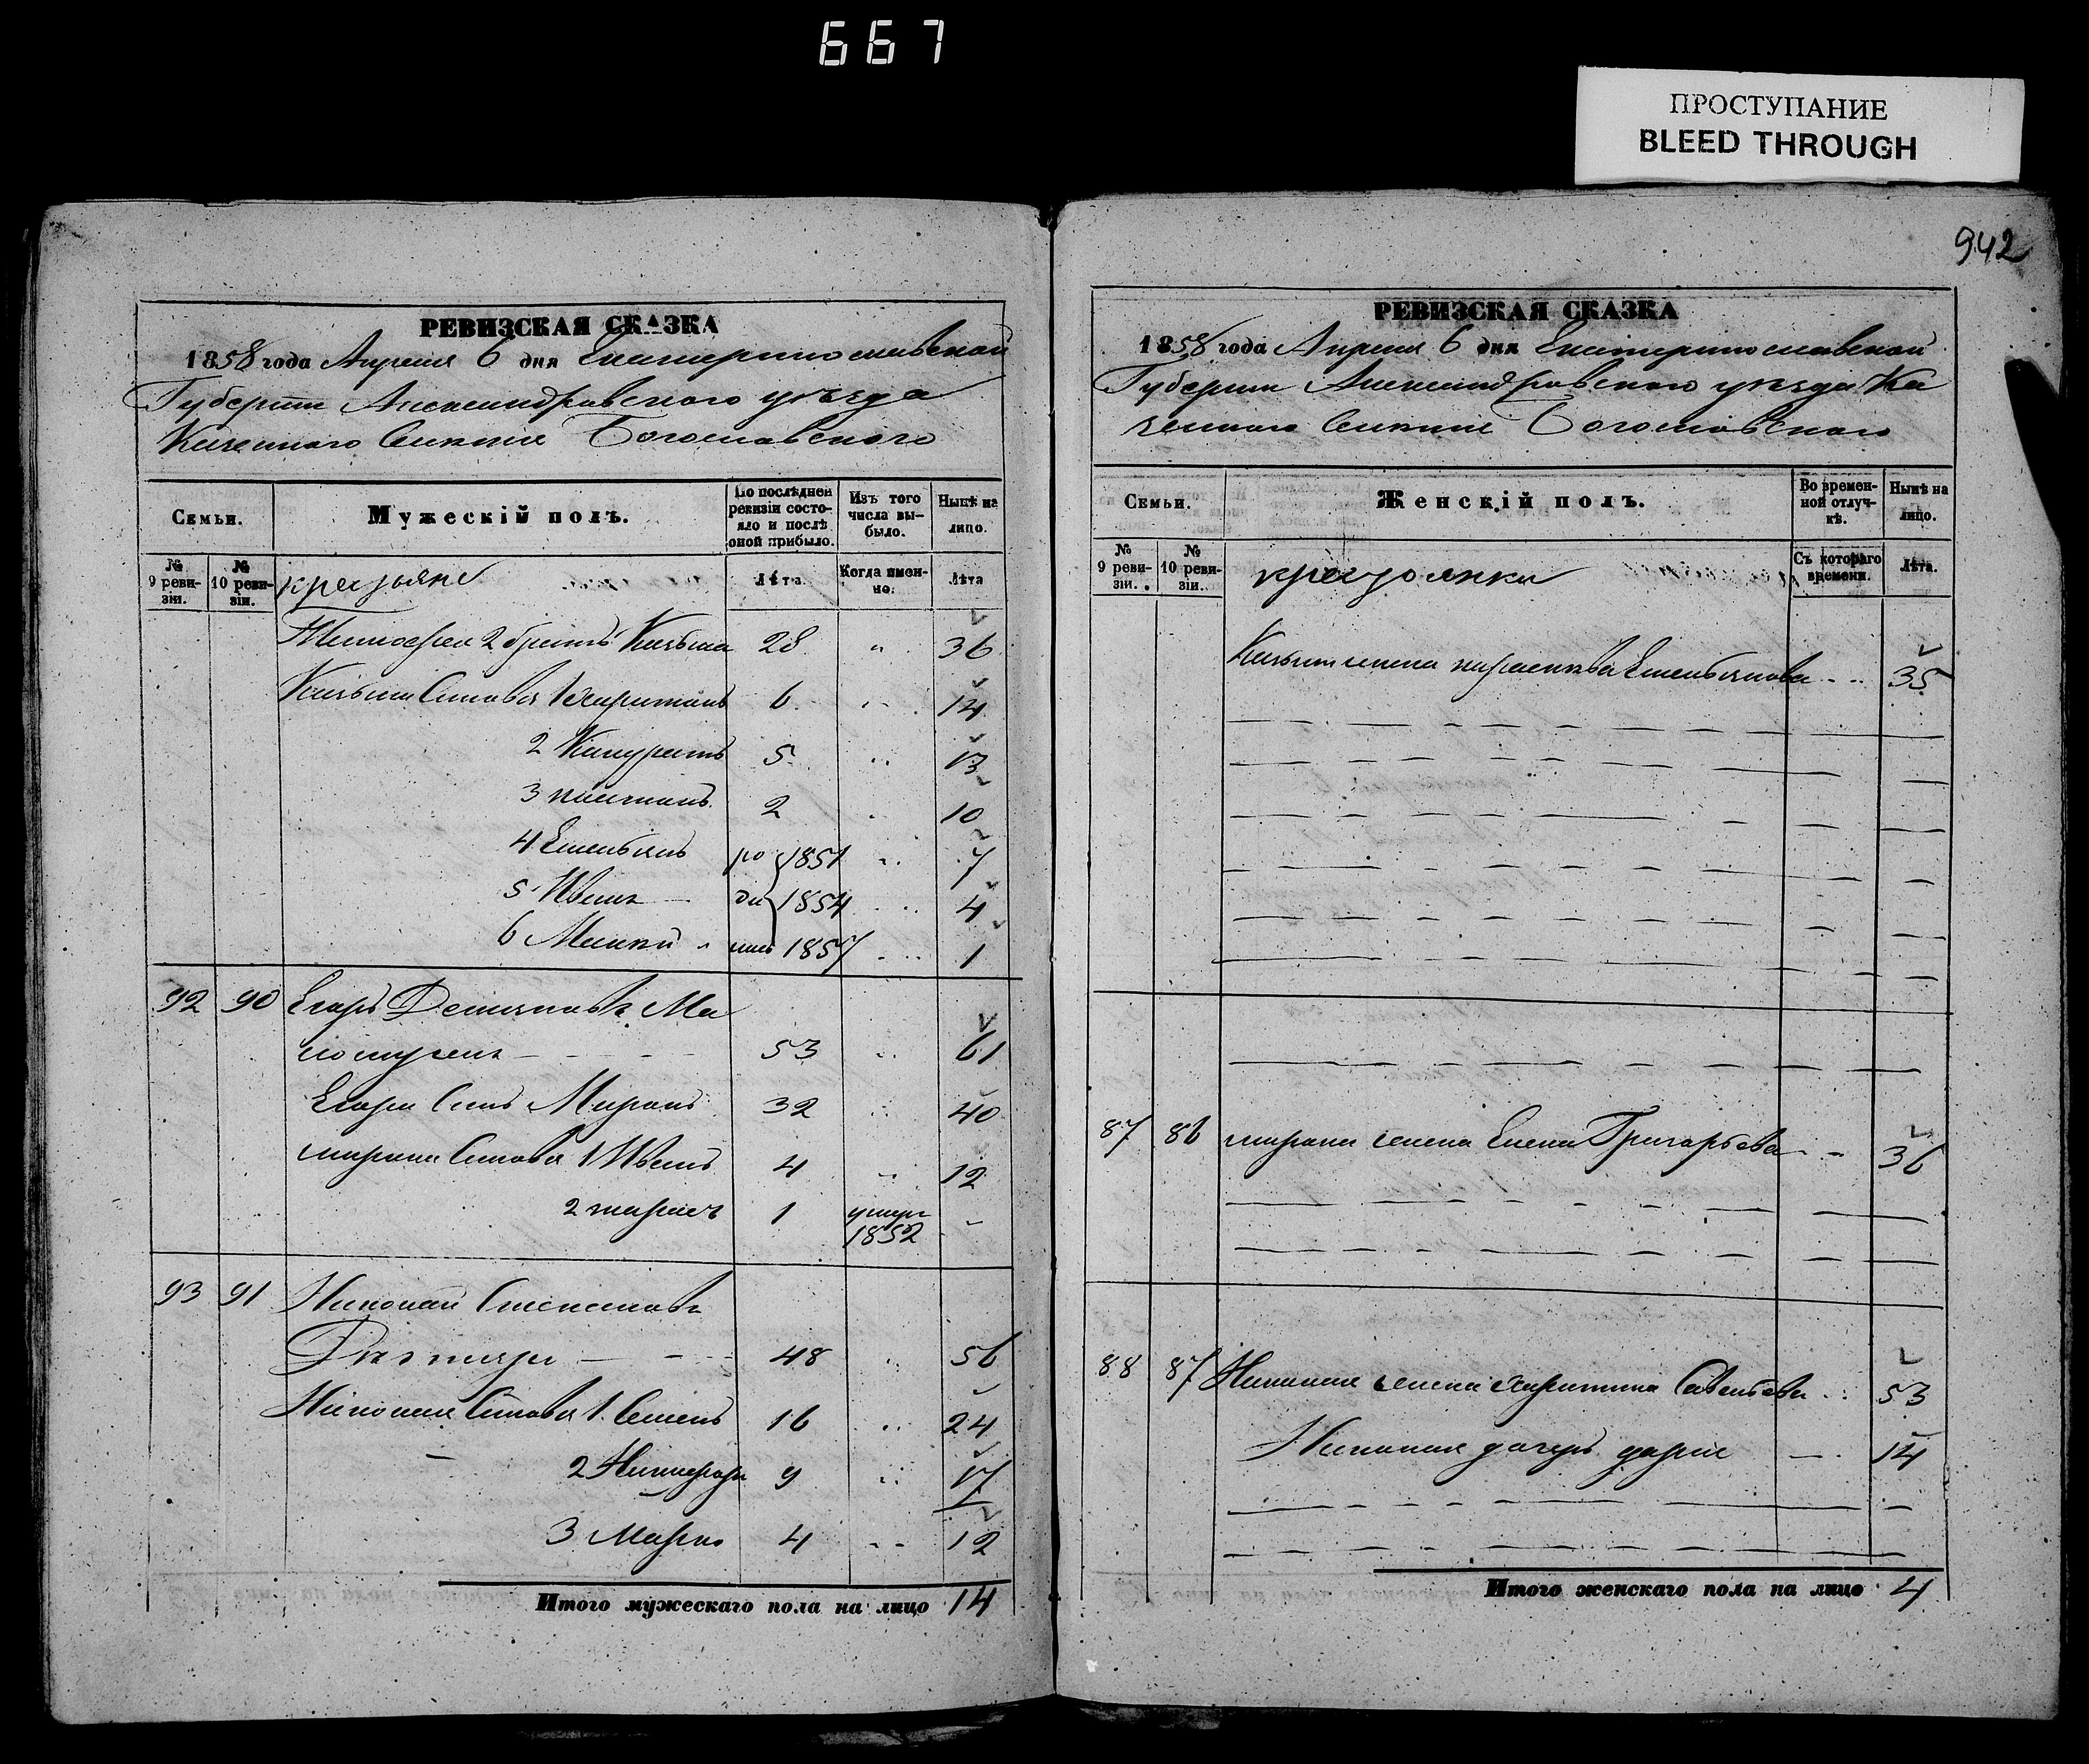 667
ПРОСТУПАНИЕ
BLEED THROUGH
РЕВИЗСКАЯ СКАЗКА
1858 года Апреля 6 дня Екатеринославской
Губернии Александровского уезда
Казенного Селения Богословского
Семьи.
Мужескiй полъ.
По послѣдней ревизiи состояло и послѣ оной прибыло.
Изъ того числа выбыло.
Нынѣ на лицо.
№ 9 ревизiи.
№ 10 ревизiи.
крестьяне
Лѣта.
Когда именно.
Лѣта
Тимофея 2 братъ Козьма 28 " 36
Козьмы Сыновья 1 Харитонъ 6 14
2 Кондратъ 5 13
3 2 10
4 Емельянъ ро 1851 7
5 Иванъ ди 1854 4
6 лись 1857 1
92 90 Егоръ Демьяновъ Ма
53 61
Егора Сынъ Миронъ 32 40
Мирона Сыновья 1 Иванъ 4 12
2 Тарасъ 1 умеръ 1852 -
93 91 Николай Степановъ
48 56
Николая Сыновья 1 Семенъ 16 24
2 Никифоръ 9 17
3 Марко 4 12
Итого мужескаго пола на лицо 14
942
РЕВИЗСКАЯ СКАЗКА
1858 года Апреля 6 дня Екатеринославской
Губернии Александровского уезда Ка
зенного Селения Богословского
Семьи.
Женскiй полъ.
Во временной отлучкѣ.
Нынѣ на лицо.
№ 9 ревизiи.
№ 10 ревизiи.
крестьянки
Съ котораго времени.
Лѣта.
Козьмы жена Параскева Емельянова 35
87 86 Мирона жена Елена Григорьева 36
88 87 Николая жена Харитина Савельева 53
Николая дочерь Дарья 14
Итого женскаго пола на лицо 4